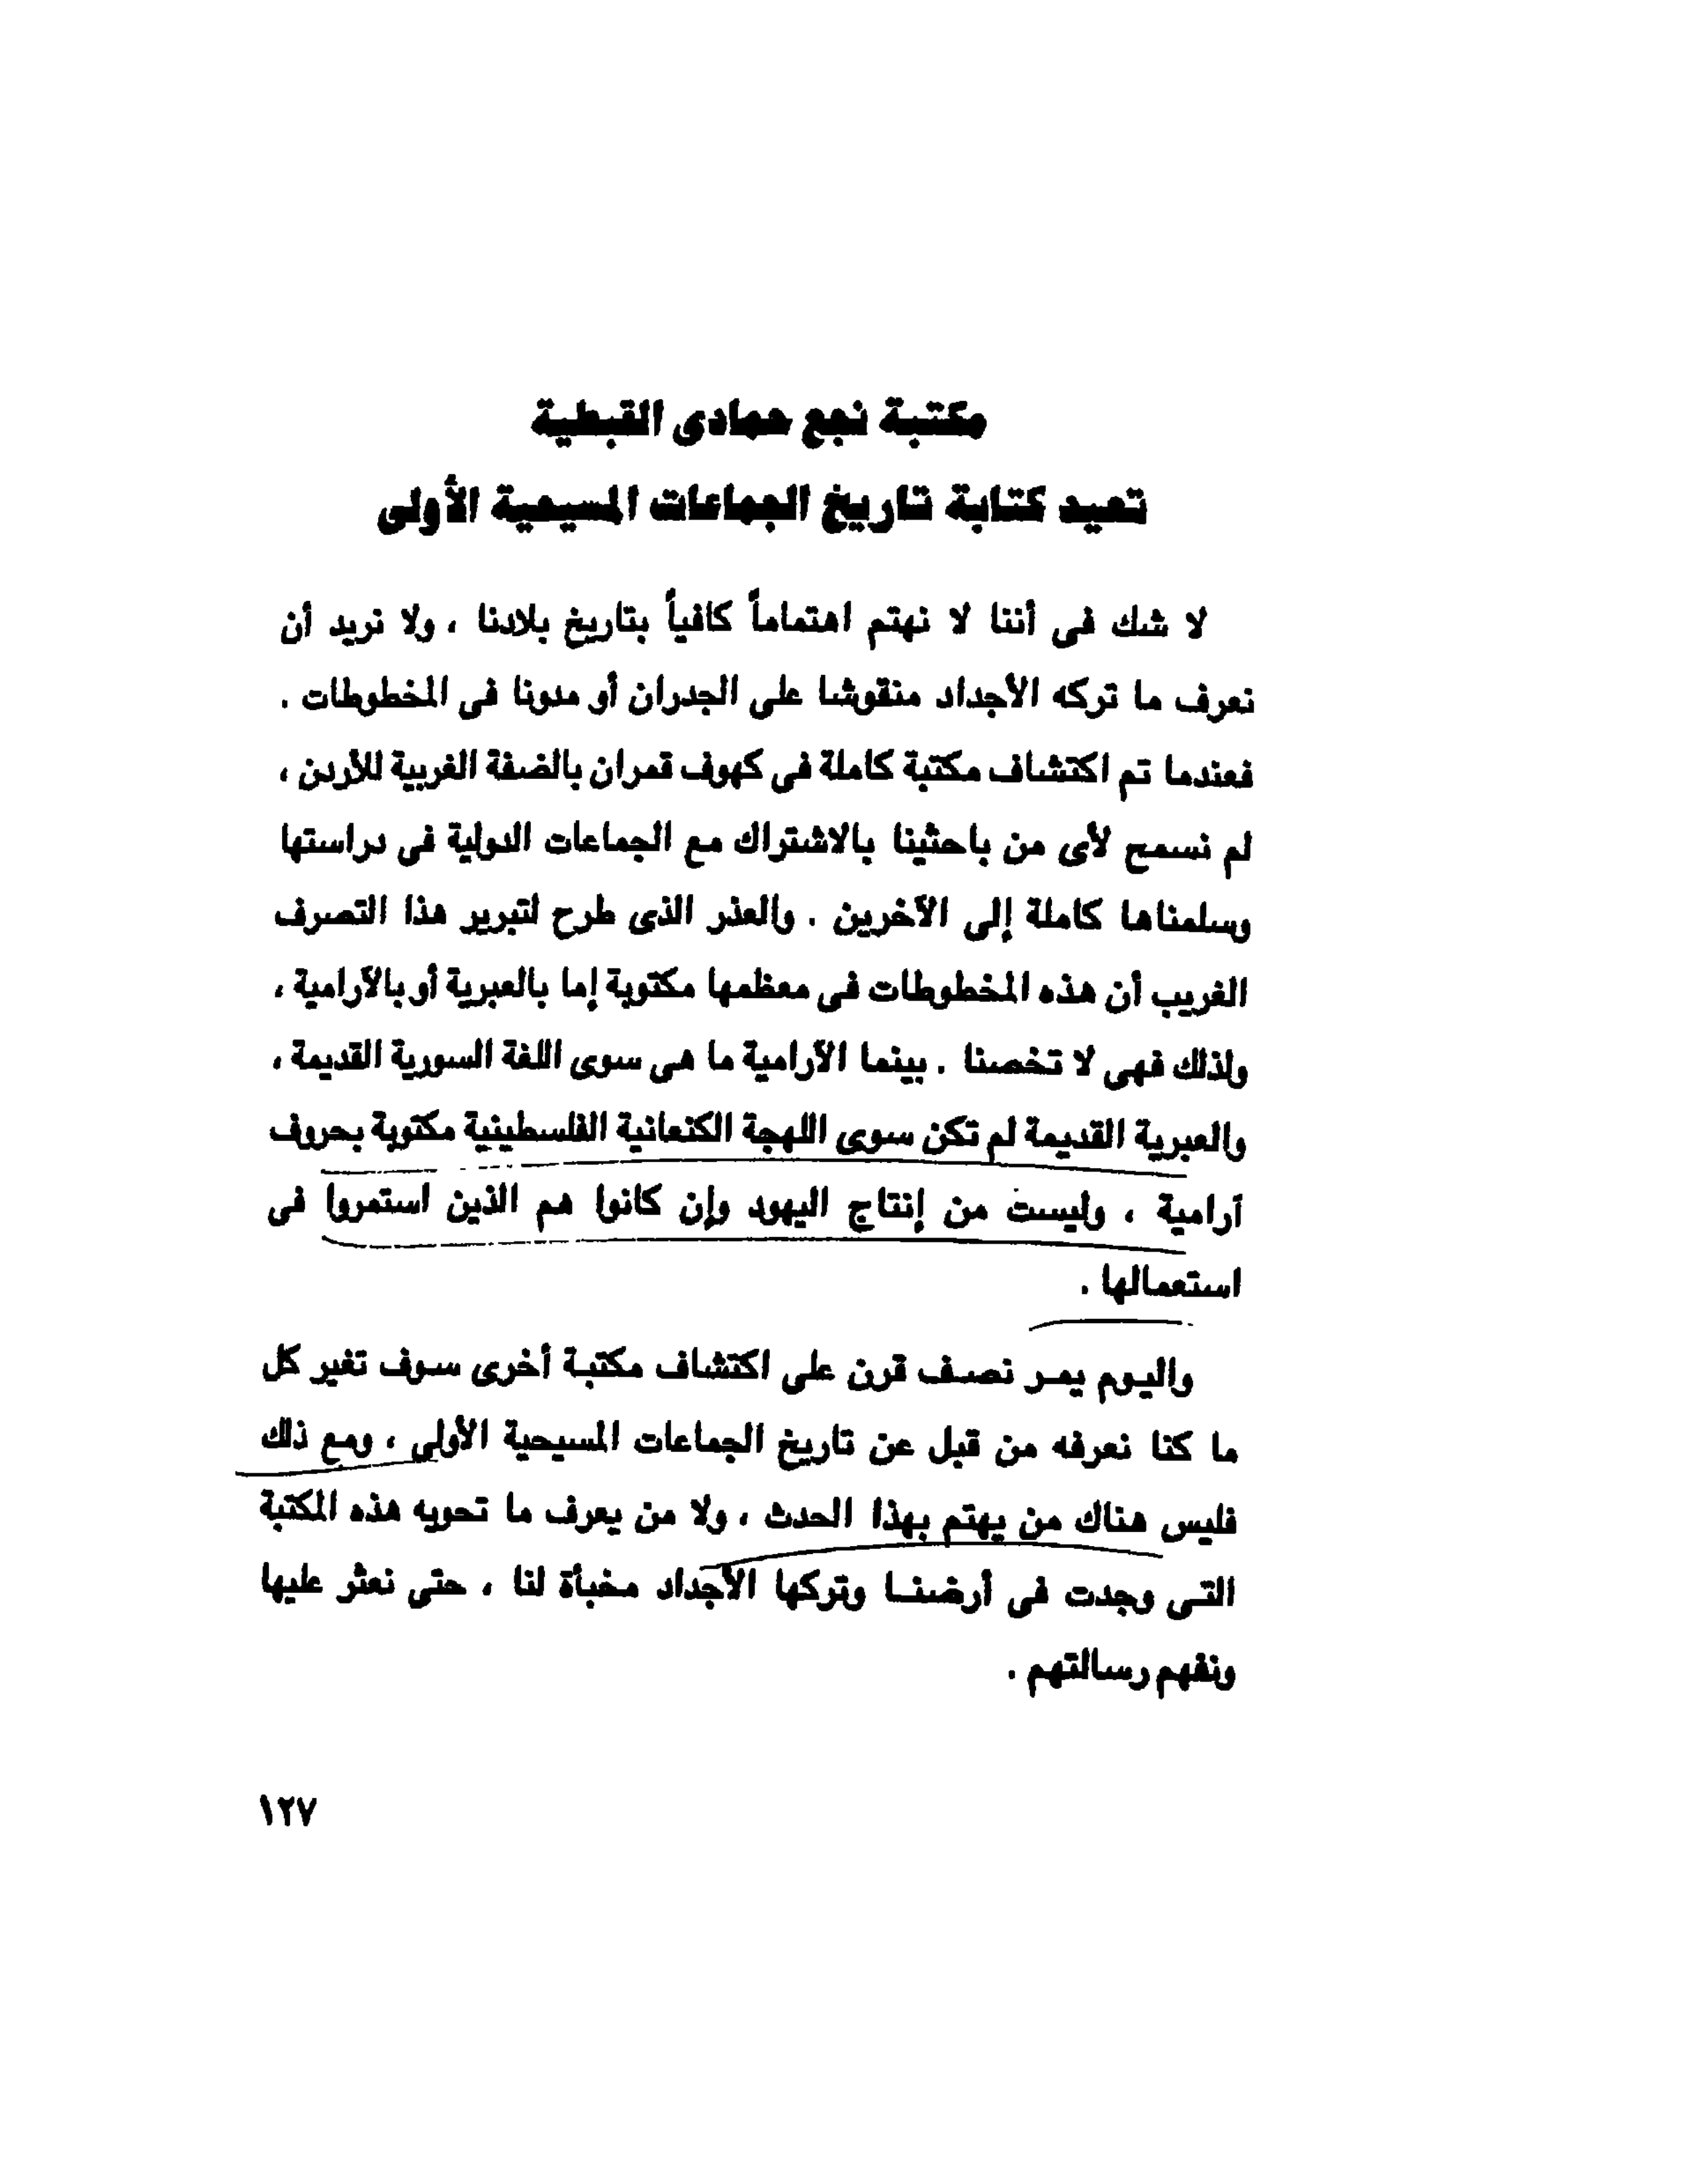 مكتبة نجع حمادى القبطية
تعيد كتابة تاريخ الجماعات المسيحية الأولى
لا شك فى أننا لا نهتم اهتماماً كافياً بتاريخ بلادنا ، ولا نريد أن
نعرف ما تركه الأجداد منقوشا على الجدران أو مدونا فى المخطوطات .
فعندما تم اكتشاف مكتبة كاملة فى كهوف قمران بالضفة الغربية للأردن ،
لم نسمح لأى من باحثينا بالاشتراك مع الجماعات الدولية فى دراستها
وسلمناها كاملة إلى الآخرين . والعذر الذى طرح لتبرير هذا التصرف
الغريب أن هذه المخطوطات فى معظمها مكتوبة إما بالعبرية أو بالآرامية ،
ولذلك فهى لا تخصنا . بينما الآرامية ما هى سوى اللغة السورية القديمة ،
والعبرية القديمة لم تكن سوى اللهجة الكنعانية الفلسطينية مكتوبة بحروف
آرامية ، وليست من إنتاج اليهود وإن كانوا هم الذين استمروا فى
استعمالها .
واليوم يمر نصف قرن على اكتشاف مكتبة أخرى سوف تغير كل
ما كنا نعرفه من قبل عن تاريخ الجماعات المسيحية الأولى ، ومع ذلك
فليس هناك من يهتم بهذا الحدث ، ولا من يعرف ما تحويه هذه المكتبة
التى وجدت فى أرضنا وتركها الأجداد مخبأة لنا ، حتى نعثر عليها
ونفهم رسالتهم .
١٢٧